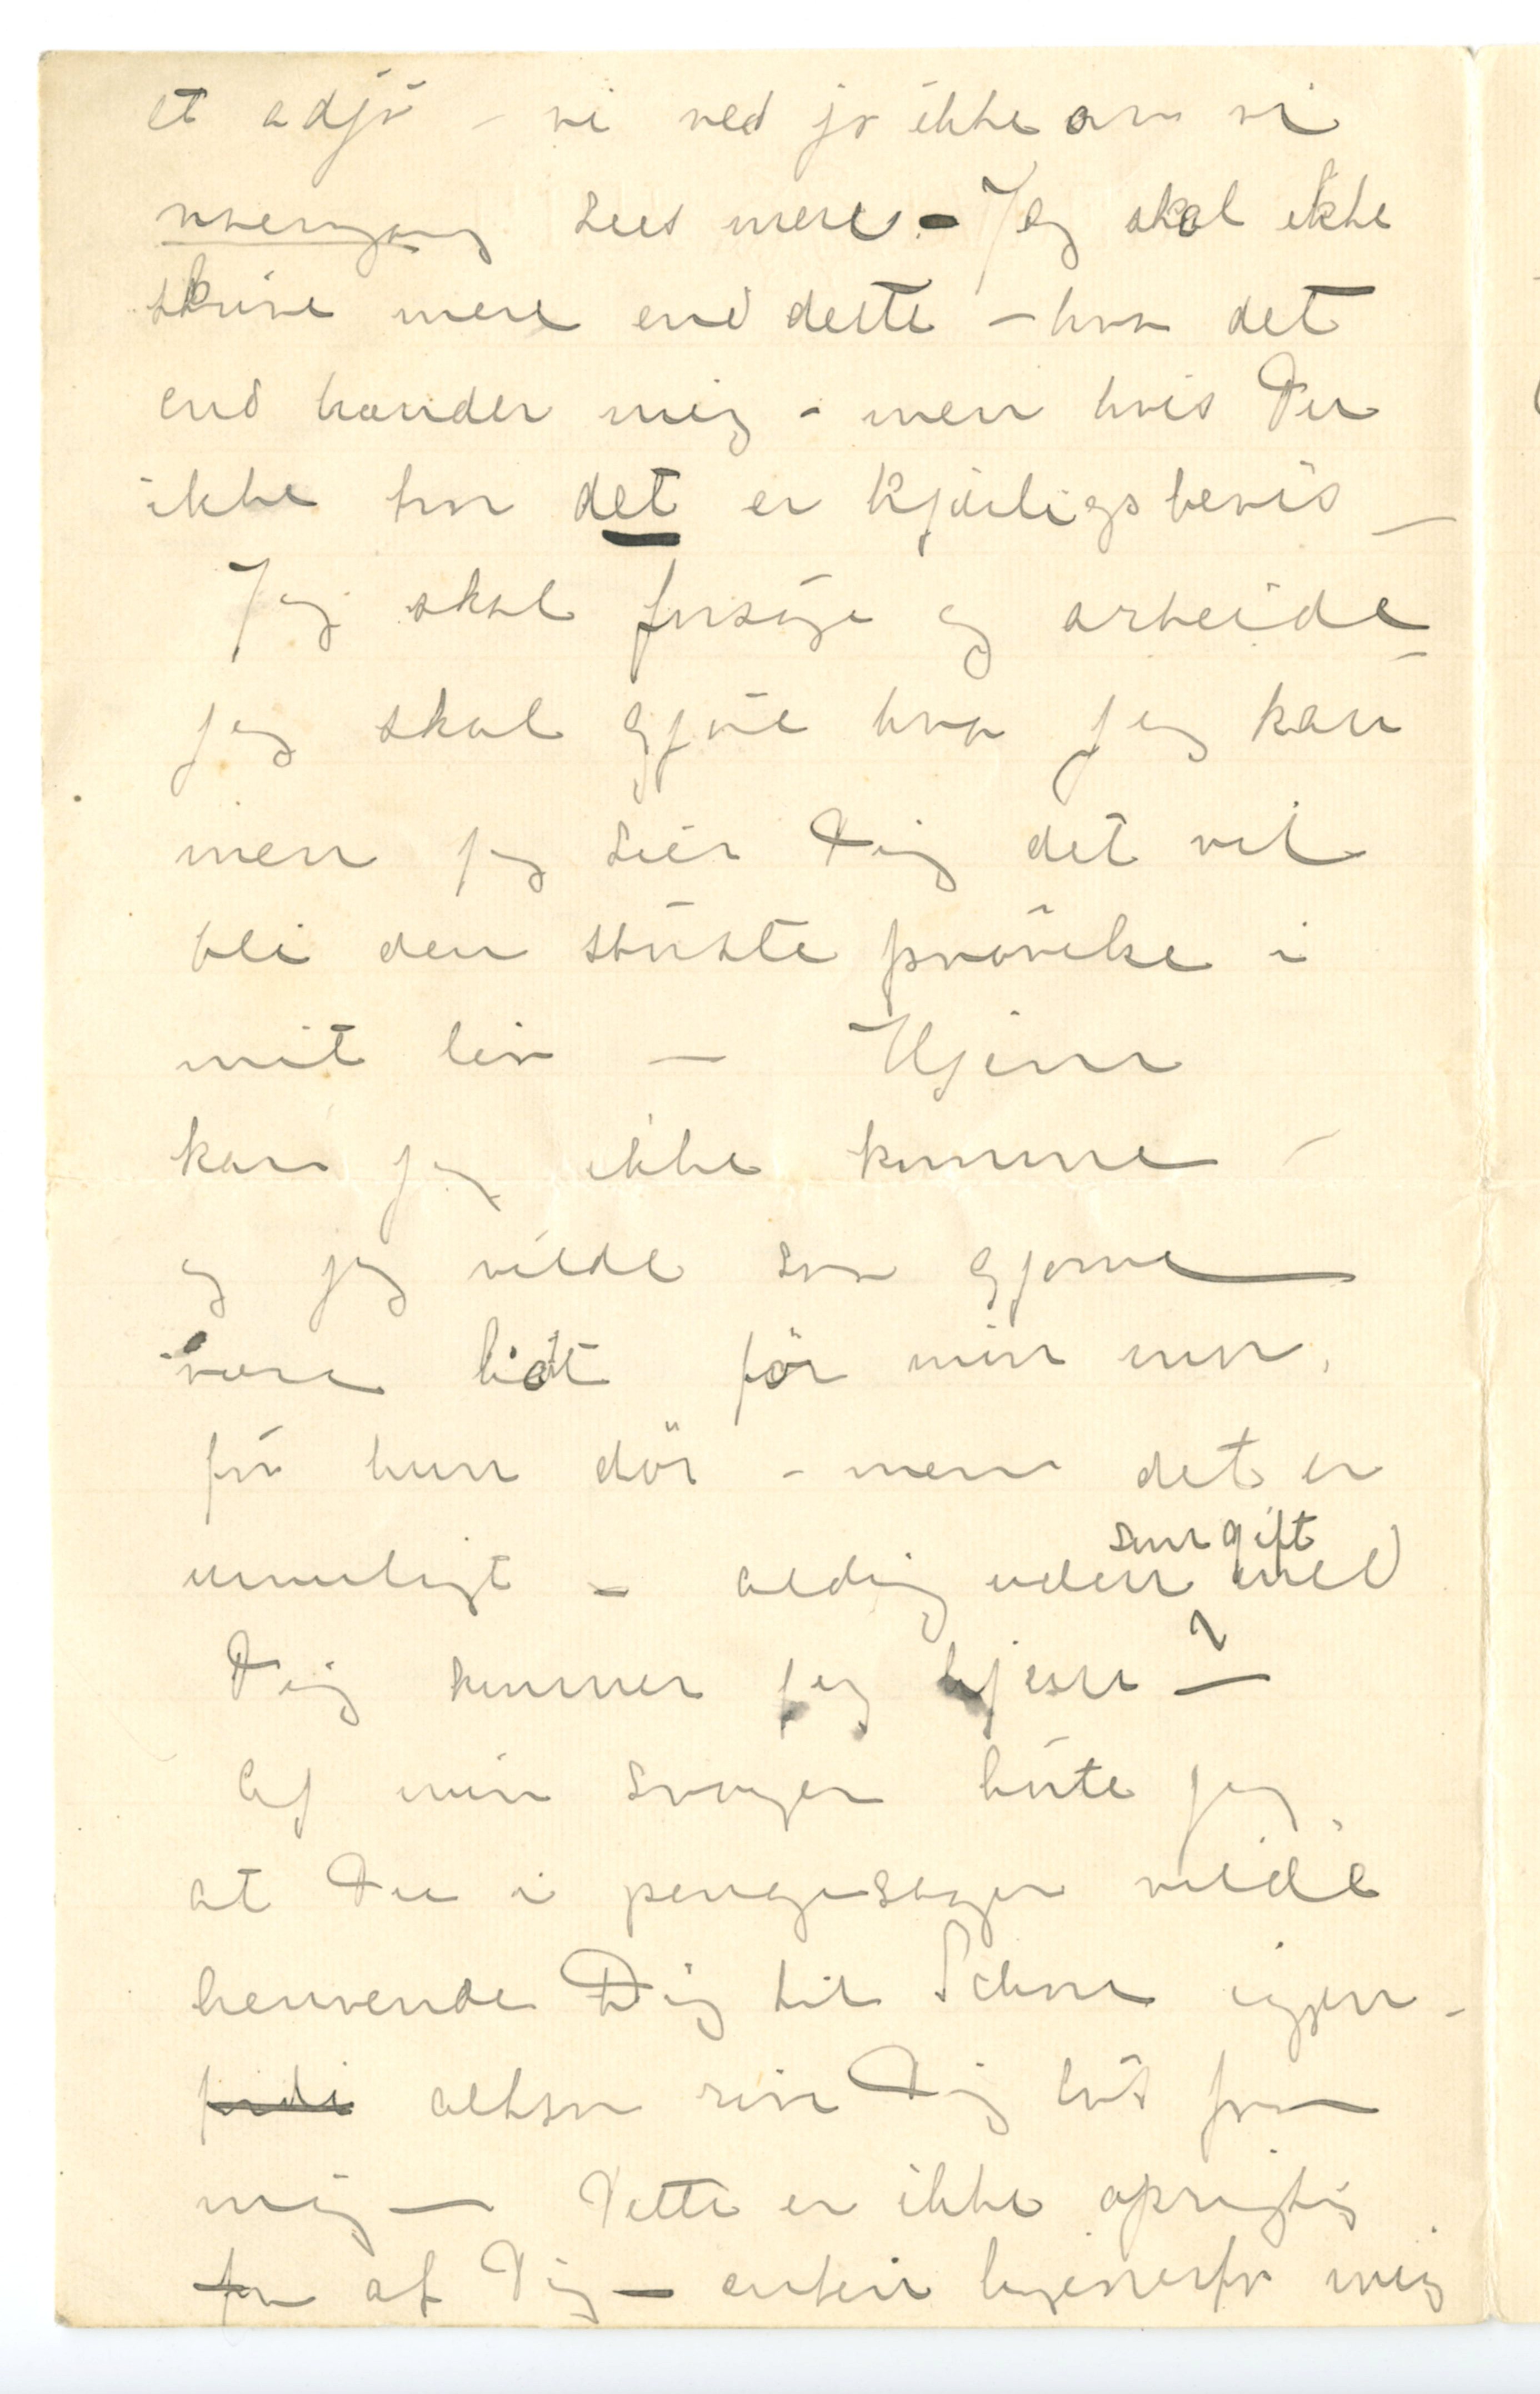 et adjö – vi ved jo ikke om vi
noengang sees mere – Jeg skal ikke
skrive mere end dette – hva det
end hænder mig – men hvis Du
ikke tror det er kjærligsbevis –
Jeg skal forsøge og arbeide –
jeg skal gjøre hva jeg kan
men jeg sier Dig det vil
bli den største prøvelse i
mit liv – Hjem
kan jeg ikke komme –
og jeg vilde saa gjerne
være lidt før min
før hun dör – men det er
umuligt – aldrig uden som gift med
Dig kommer jeg hjem –
Af min svoger hørte jeg
at Du i pengesager vilde
henvende Dig til igjen –
fordi altsaa rive Dig løs fra
mig – Dette er ikke oprigtig
fra af Dig – enten ligeoverfor mig